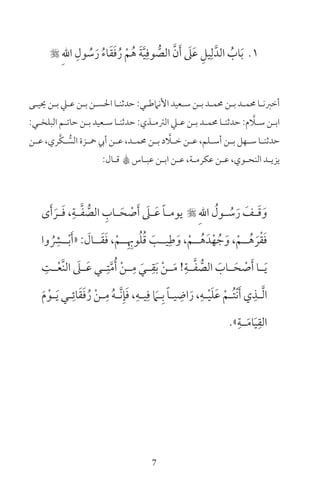 ١. بَابُ الدَّلِيلِ عَلَى أَنَّ الصُّوفِيَّةَ هُمْ رُفَقَاءُ رَسُولِ اللهِ ﷺ
أخبرنا محمد بن محمد بن سعيد الأنماطي: حدثنا الحسن بن علي بن يحيى
ابن سلَّام: حدثنا محمد بن علي الترمذي: حدثنا سعيد بن حاتم البلخي:
حدثنا سهل بن أسلم، عن خلَّاد بن محمد، عن أبي حمزة السُّكَّري، عن
يزيد النحوي، عن عكرمة، عن ابن عباس ﷺ قال:
وَقَفَ رَسُولُ اللهِ ﷺ يوماً عَلَى أَصْحَابِ الصُّفَّةِ، فَرَأَى
فَقْرَهُمْ، وَجُهْدَهُمْ، وَطِيبَ قُلُوبِهِمْ، فَقَالَ: «أَبْشِرُوا
يَا أَصْحَابَ الصُّفَّةِ! مَنْ بَقِيَ مِنْ أُمَّتِي عَلَى النَّعْتِ
الَّذِي أَنْتُمْ عَلَيْهِ، رَاضِياً بِمَا فِيهِ، فَإِنَّهُ مِنْ رُفَقَائِي يَوْمَ
القِيَامَةِ».
7